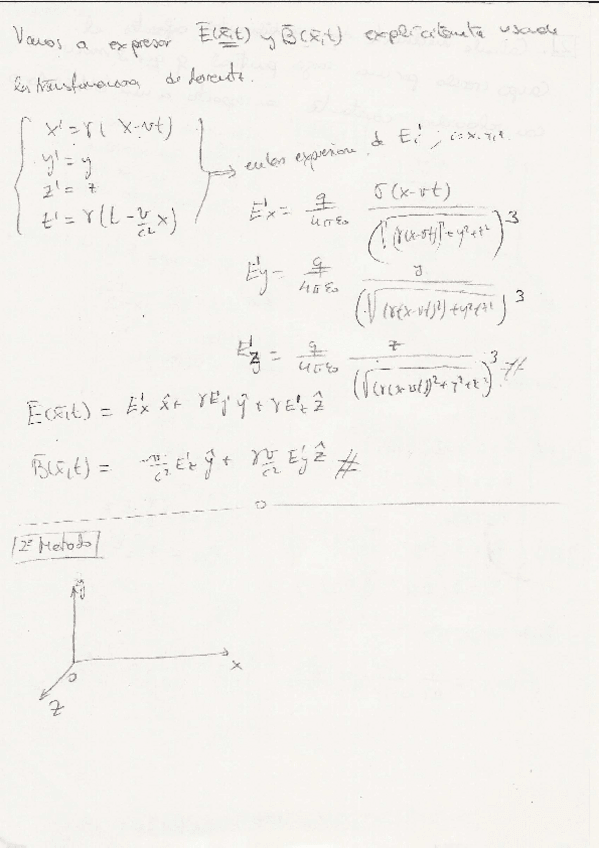 Vamos a expresar Ē(x̄,t) y B̄(x̄,t) explícitamente usando
las transformaciones de Lorentz.
x' = γ(x-vt)
y' = y
z' = z
t' = γ(t - v/c² x)
⇒ en las expresiones de E'i ; i=x,y,z.
E'x = q/4πε₀ γ(x-vt)/(√([γ(x-vt)]²+y²+z²))³
E'y = q/4πε₀ y/(√((γ(x-vt)²)+y²+z²))³
E'z = q/4πε₀ z/(√((γ(x-vt))²+y²+z²))³ //
Ē(x̄,t) = E'x x̂ + γE'y ŷ + γE'z ẑ
B̄(x̄,t) = -γv/c² E'z ŷ + γv/c² E'y ẑ //
0
2º Metodo
y
x
0
z